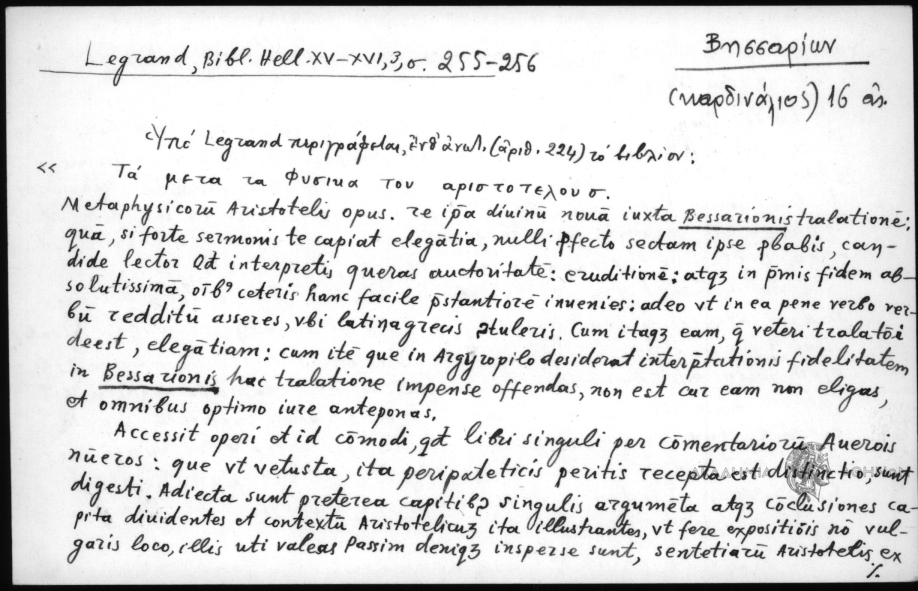 Legrand, Bibl. Hell. XV-XVI, 3, σ. 255-256
Βησσαρίων
(καρδινάλιος) 16 αἰ.
Ὑπὸ Legrand περιγράφεται, ἔνθ' ἀνωτ. (ἀριθ. 224) τὸ βιβλίον:
« Τά μετα τα Φυσικα του αριστοτελουσ.
Metaphysicorū Aristotelis opus. re ip̄a diuinū nouā iuxta Bessarionis tralationē:
quā, si forte sermonis te capiat elegātia, nulli ꝓfecto sectam ipse ꝓbabis, can-
dide lector Qđ interpretis queras auctoritatē: eruditionē: atqꝫ in p̄mis fidem ab-
solutissimā, oīb⁹ ceteris hanc facile p̄stantiorē inuenies: adeo vt in ea pene verbo ver-
bū redditū asseres, vbi latina grecis ↄtuleris. Cum itaqꝫ eam, q̄ veteri tralatōi
deest, elegātiam: cum itē que in Argyropilo desiderat interp̄tationis fidelitatem
in Bessarionis hac tralatione impense offendas, non est cur eam non eligas,
et omnibus optimo iure anteponas.
Accessit operi et id cōmodi, qđ libri singuli per cōmentariorū Auerois
nūeros: que vt vetusta, ita peripateticis peritis recepta est distinctio, sunt
digesti. Adiecta sunt preterea capitibꝫ singulis argumēta atqꝫ cōclusiones ca-
pita diuidentes et contextū Aristotelicuꝫ ita illustrantes, vt fere expositiōis nō vul-
garis loco, illis uti valeas Passim deniqꝫ insperse sunt, sentetiarū Aristotelis ex
./.